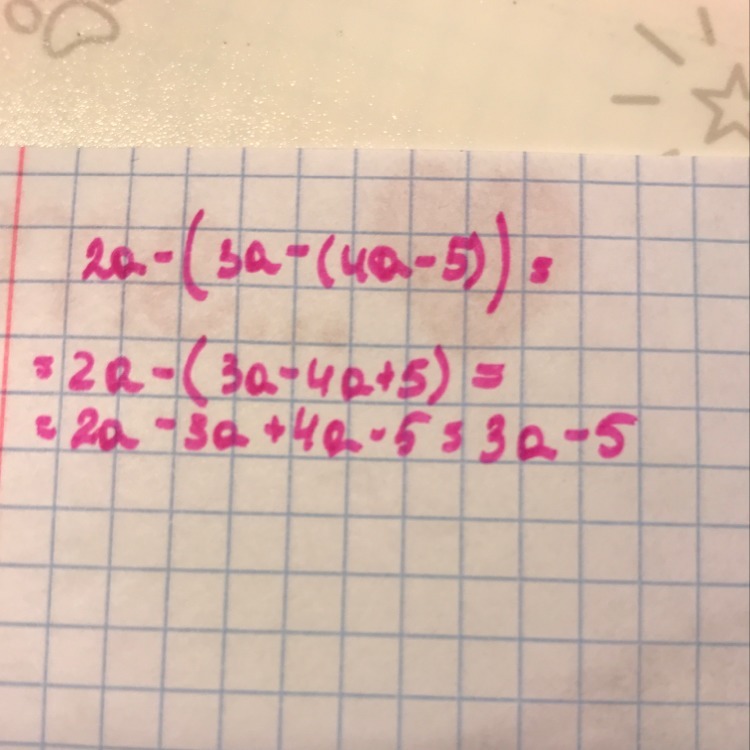 2a-(3a-(4a-5))=
=2a-(3a-4a+5)=
=2a-3a+4a-5=3a-5